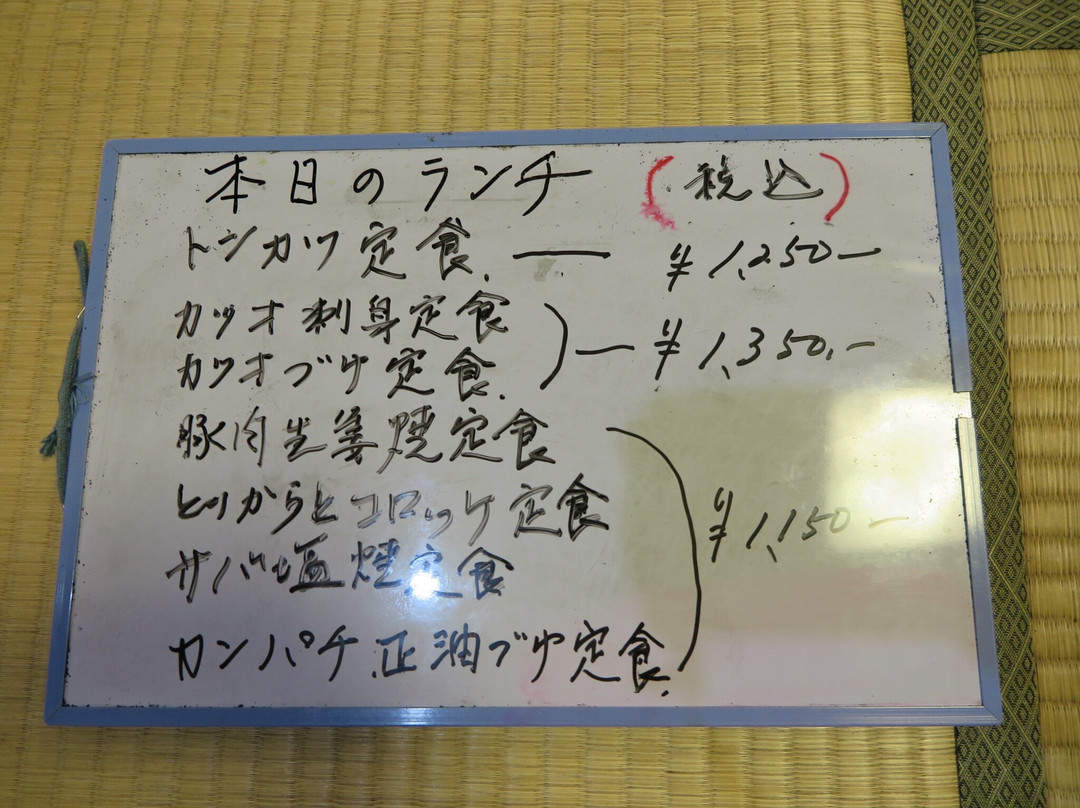 本日のランチ (税込)
トンカツ定食. — ¥1,250-
カツオ刺身定食
カツオづけ定食. — ¥1,350.-
豚肉生姜焼定食
とりからとコロッケ定食 ¥1,150-
サバ塩焼定食
カンパチ正油づけ定食.